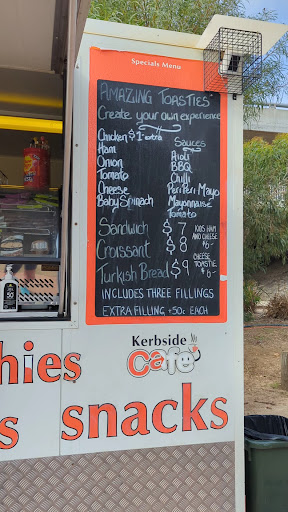 Specials Menu
AMAZING TOASTIES
Create your own experience
Chicken $1-extra
Ham
Onion
Tomato
Cheese
Baby Spinach
Sauces
Aioli
BBQ
Chilli
Peri Peri Mayo
Mayonnaise
Tomato
Sandwich $7
Croissant $8
Turkish Bread $9
KIDS HAM
AND CHEESE
$6-
CHEESE
TOASTIE
$6-
INCLUDES THREE FILLINGS
EXTRA FILLING +50c EACH
Kerbside
Cafe
hies
s snacks